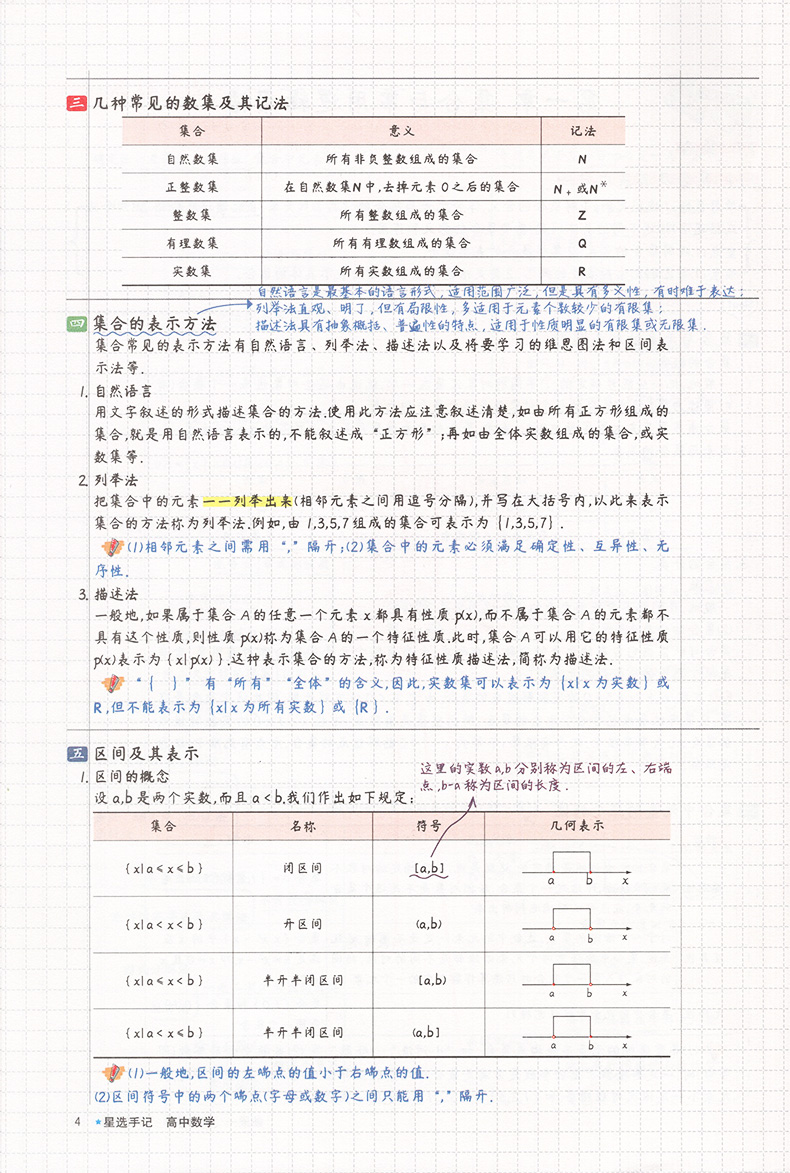 三 几种常见的数集及其记法
集合 意义 记法
自然数集 所有非负整数组成的集合 N
正整数集 在自然数集N中,去掉元素0之后的集合 N₊或N*
整数集 所有整数组成的集合 Z
有理数集 所有有理数组成的集合 Q
实数集 所有实数组成的集合 R
自然语言是最基本的语言形式,适用范围广泛,但是具有多义性,有时难于表达;
列举法直观、明了,但有局限性,多适用于元素个数较少的有限集;
描述法具有抽象概括、普遍性的特点,适用于性质明显的有限集或无限集.
四 集合的表示方法
集合常见的表示方法有自然语言、列举法、描述法以及将要学习的维恩图法和区间表
示法等.
1. 自然语言
用文字叙述的形式描述集合的方法.使用此方法应注意叙述清楚,如由所有正方形组成的
集合,就是用自然语言表示的,不能叙述成“正方形”;再如由全体实数组成的集合,或实
数集等.
2. 列举法
把集合中的元素一一列举出来(相邻元素之间用逗号分隔),并写在大括号内,以此来表示
集合的方法称为列举法.例如,由1,3,5,7组成的集合可表示为{1,3,5,7}.
(1)相邻元素之间需用“,”隔开;(2)集合中的元素必须满足确定性、互异性、无
序性.
3. 描述法
一般地,如果属于集合A的任意一个元素x都具有性质p(x),而不属于集合A的元素都不
具有这个性质,则性质p(x)称为集合A的一个特征性质.此时,集合A可以用它的特征性质
p(x)表示为{x|p(x)}.这种表示集合的方法,称为特征性质描述法,简称为描述法.
“{ }”有“所有”“全体”的含义,因此,实数集可以表示为{x|x为实数}或
R,但不能表示为{x|x为所有实数}或{R}.
五 区间及其表示
1. 区间的概念
这里的实数a,b分别称为区间的左、右端
点,b-a称为区间的长度.
设a,b是两个实数,而且a<b.我们作出如下规定:
集合 名称 符号 几何表示
{x|a≤x≤b} 闭区间 [a,b] a b x
{x|a<x<b} 开区间 (a,b) a b x
{x|a≤x<b} 半开半闭区间 [a,b) a b x
{x|a<x≤b} 半开半闭区间 (a,b] a b x
(1)一般地,区间的左端点的值小于右端点的值.
(2)区间符号中的两个端点(字母或数字)之间只能用“,”隔开.
4 ★星选手记 高中数学